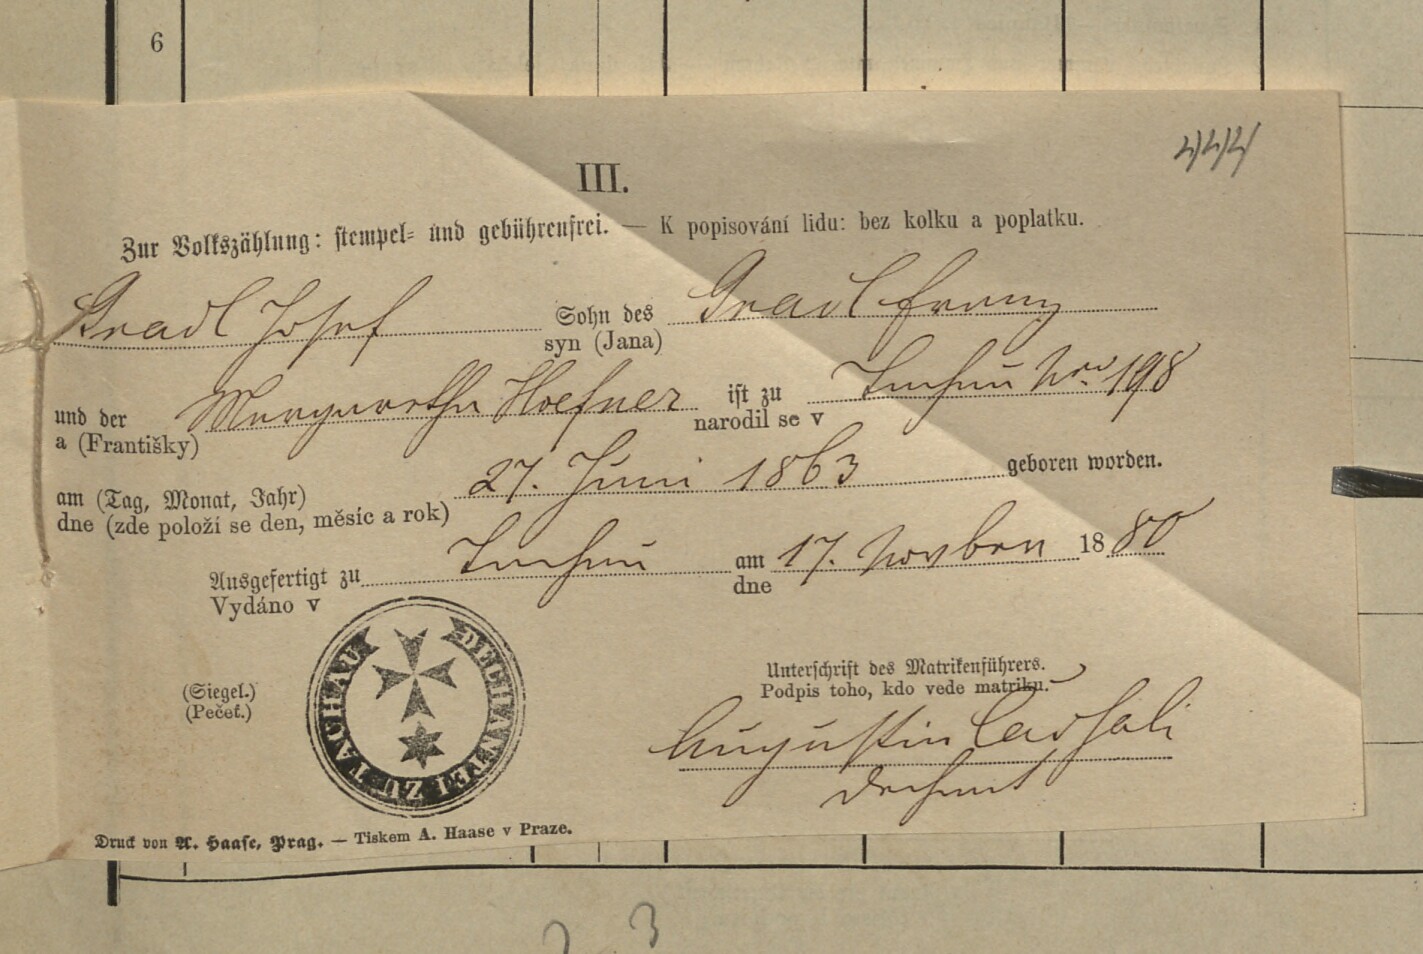 6
III.
Zur Volkszählung: stempel= und gebührenfrei. — K popisování lidu: bez kolku a poplatku.
Gradl Josef Sohn des Gradl Franz
syn (Jana)
und der Margaretha Hoefner ist zu Tachau No. 198
a (Františky) narodil se v
am (Tag, Monat, Jahr) 27. Juni 1863 geboren worden.
dne (zde položí se den, měsíc a rok)
Ausgefertigt zu Tachau am 17. Novben 1880
Vydáno v dne
DECHANTEI ZU TACHAU
(Siegel.)
(Pečeť.)
Unterschrift des Matrikenführers.
Podpis toho, kdo vede matriku.
Augustin
Dechant
Druck von A. Haase, Prag. — Tiskem A. Haase v Praze.
3